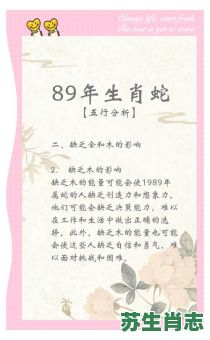 Change life, start fresh.
The best is yet to come.
89年生肖蛇
【五行分析】
二、缺乏金和木的影响
2. 缺乏木的影响
缺乏木的能量可能会使1989年
属蛇的人缺乏创造力和想象力。
他们可能会缺乏决策能力，难以
在工作和生活中做出正确的选
择。此外，缺乏木的能量也可能
会使这些人缺乏自信和勇气，难
以面对挑战和困难。
苏生肖志